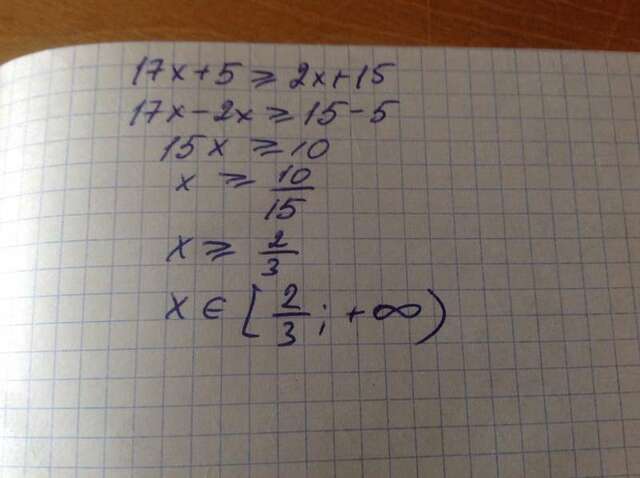 17x+5 ⩾ 2x+15
17x-2x ⩾ 15-5
15x ⩾ 10
x ⩾ 10/15
x ⩾ 2/3
x ∈ [2/3; +∞)